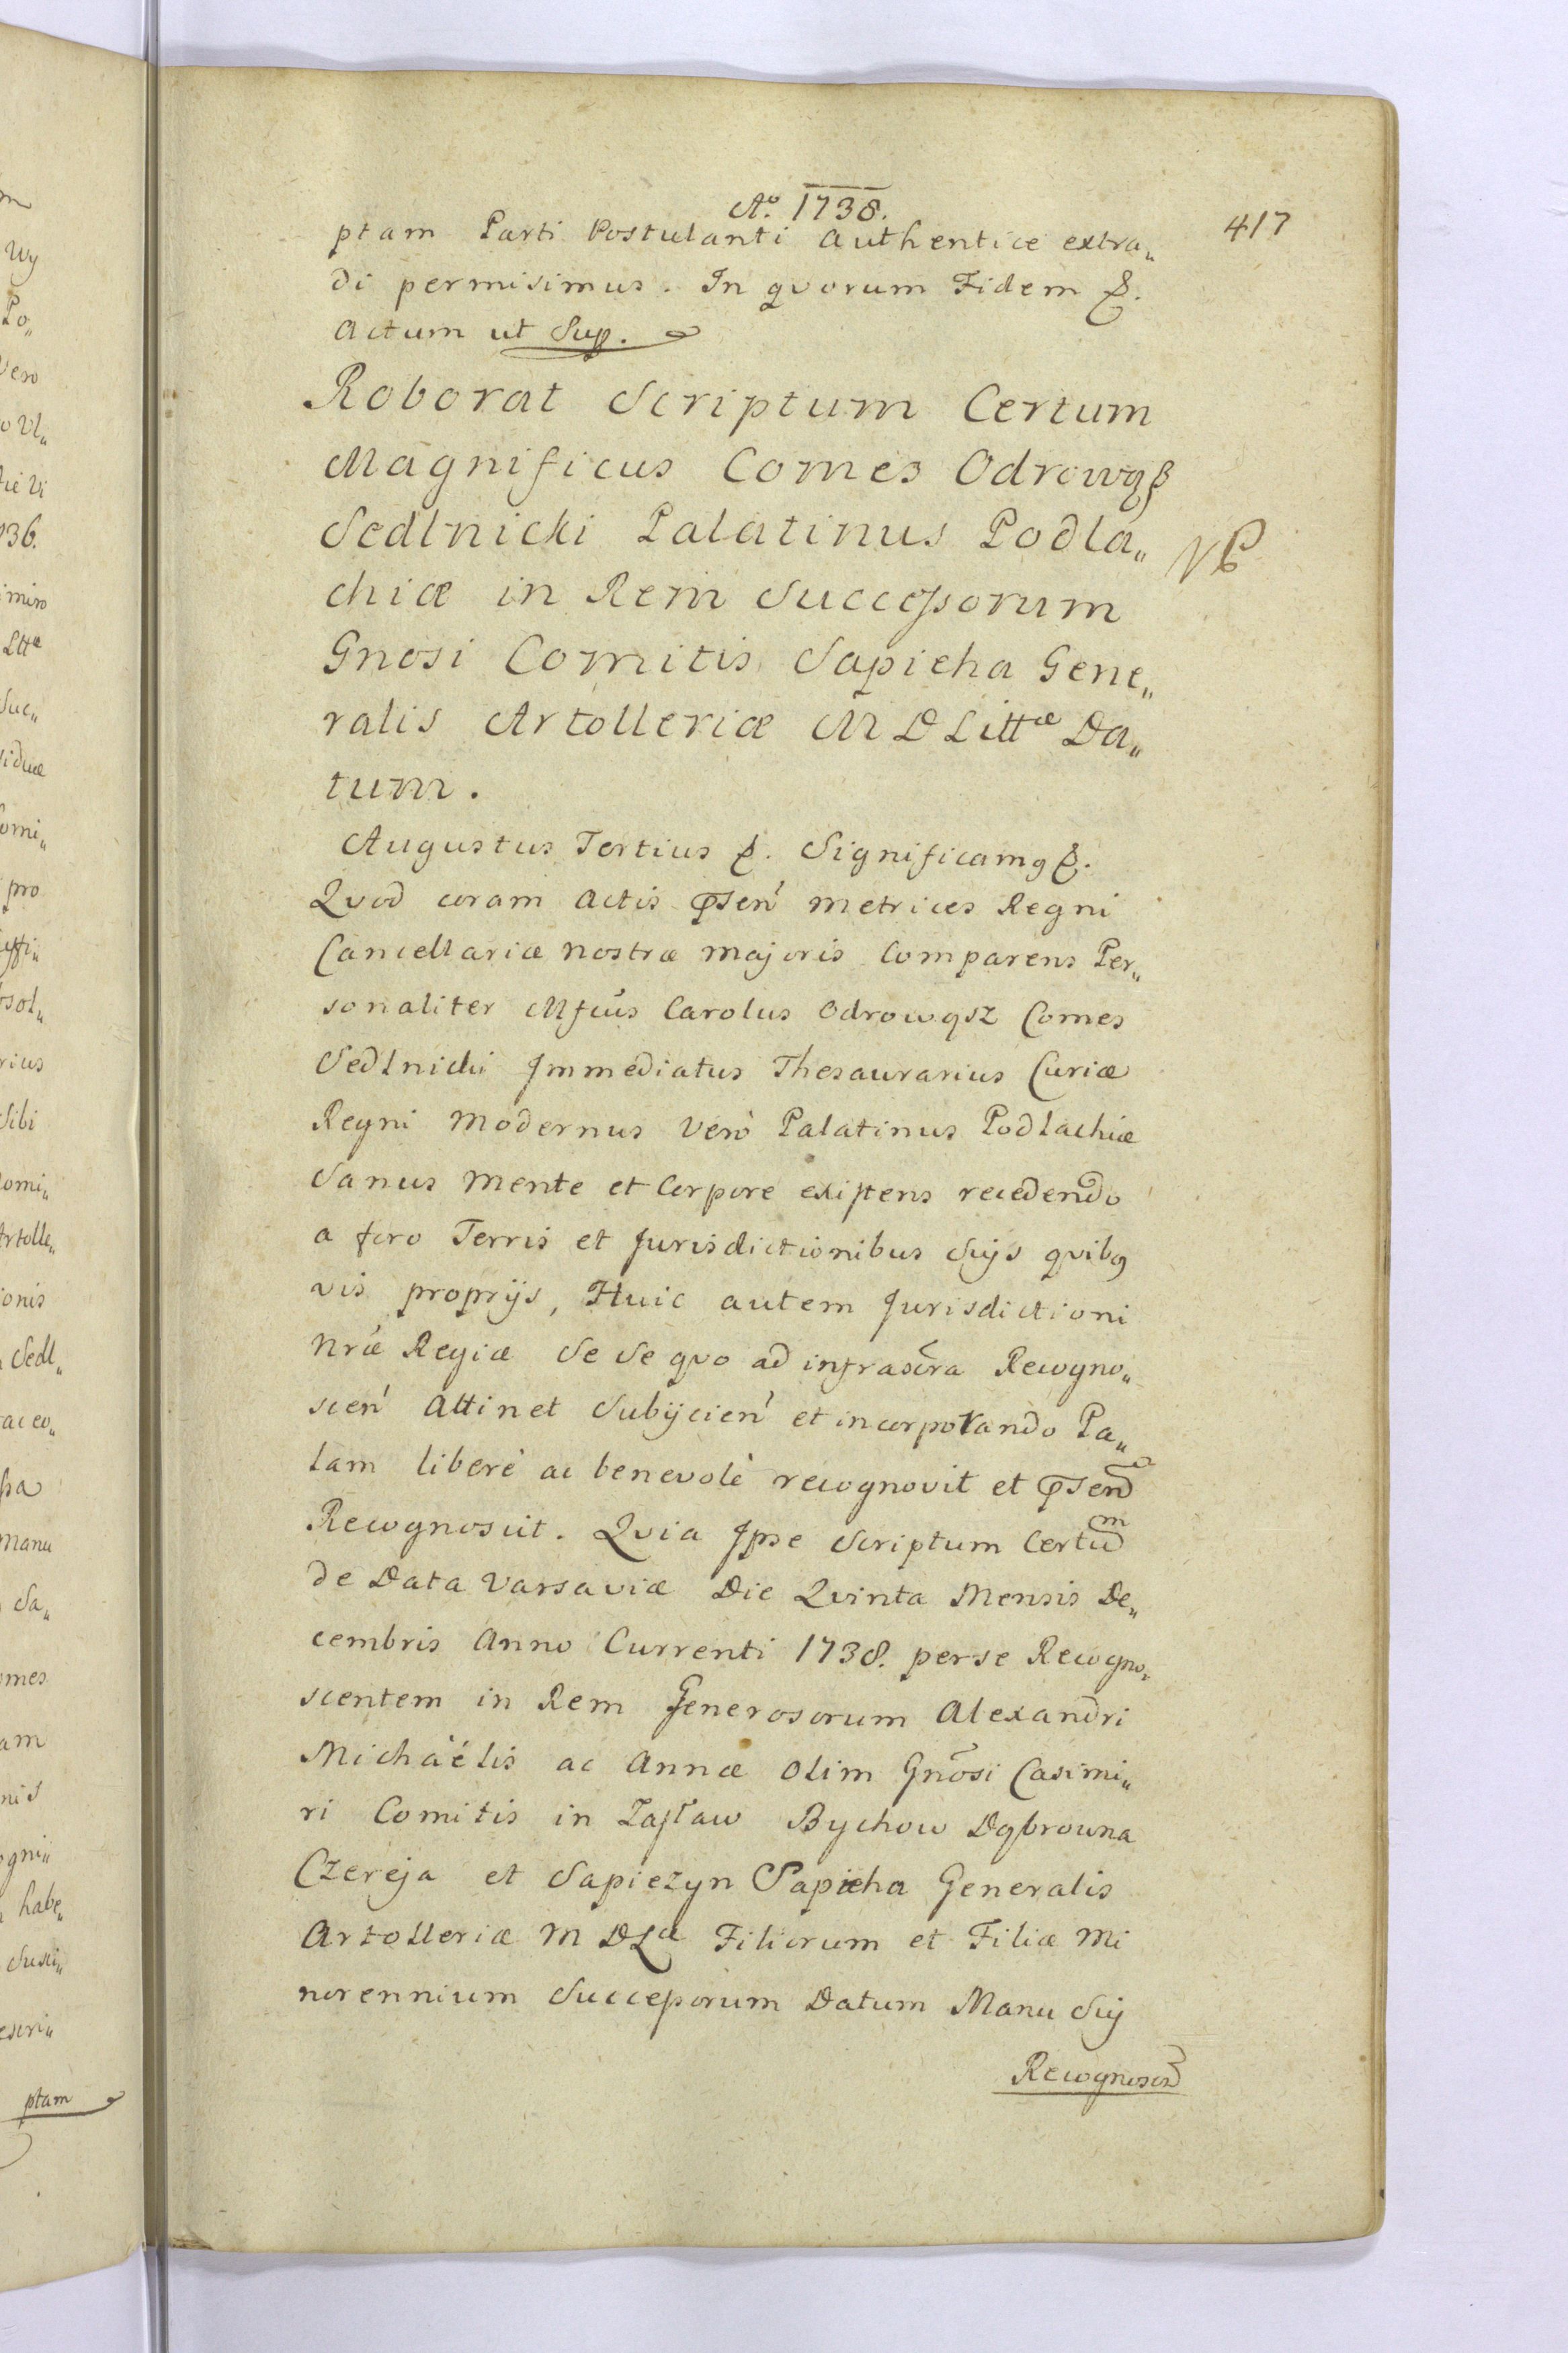 Aº. 1738.
417
ptam Parti Postulanti authentice extra„
di permisimus. In qvorum Fidem &.
Actum ut Sup.
Roborat Scriptum Certum
Magnificus Comes Odrowąß
Sedlnicki Palatinus Podla„
chiæ in Rem Successorum
Gnosi Comitis Sapieha Gene„
ralis Artolleriæ M D Littæ Da„
tum.
Augustus Tertius &. Significamq &.
Qvod coram Actis Psen metrices Regni
Cancellariæ nostræ majoris Comparens Per„
sonaliter Mfcus Carolus Odrowąsz Comes
Sedlnicki Immediatus Thesaurarius Curiæ
Regni Modernus Verò Palatinus Podlachiæ
Sanus Mente et Corpore existens recedendo
a foro Terris et Jurisdictionibus Suijs qvibq
vis proprijs, Huic autem Jurisdictioni
Nræ Regiæ Se Se qvo ad infrascra Recogno„
scen Attinet Subijcien et incorporando Pa„
lam liberè ac benevolè recognovit et Psend
Recognoscit. Qvia Ipse Scriptum Certum
de Data Varsaviæ Die Qvinta Mensis De„
cembris Anno Currenti 1738. per se Recogno„
scentem in Rem Generosorum Alexandri
Michaëlis ac Annæ Olim Gnosi Casimi„
ri Comitis in Zasław Bychow Dąbrowna
Czereja et Sapiezyn Sapieha Generalis
Artolleriæ M D Læ Filiorum et Filiæ Mi
norennium Successorum Datum Manu Suij
Recognoscen